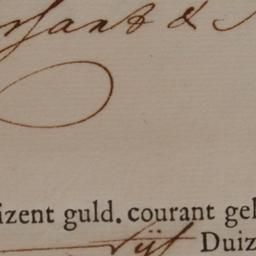 rsant &
izent guld. courant gel
vijf Duiz